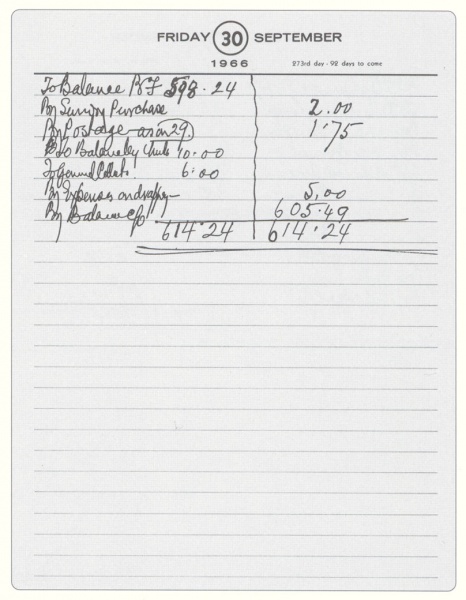 FRIDAY 30 SEPTEMBER
1966 273rd day - 92 days to come
To Balance B/F 598.24
By Sundry Purchase 2.00
By Postage as on 29. 1.75
To 10.00
To 6.00
By Expenses 5.00
By Balance c/o 605.49
614.24 614.24